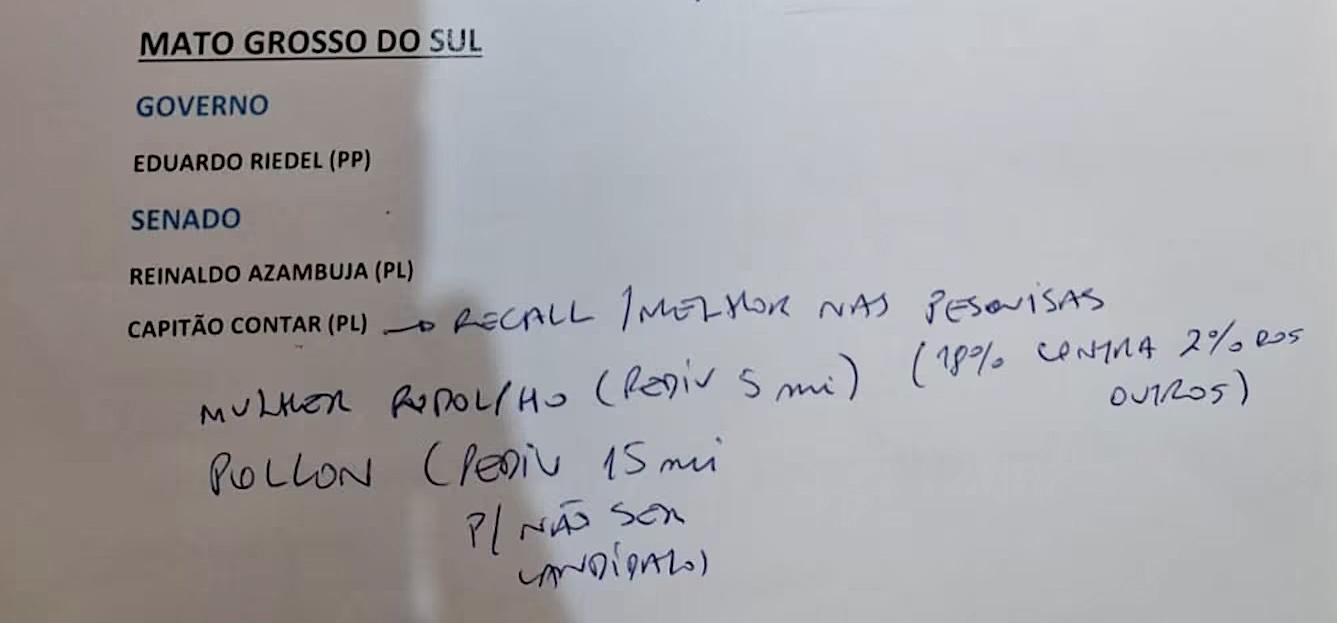 MATO GROSSO DO SUL
GOVERNO
EDUARDO RIEDEL (PP)
SENADO
REINALDO AZAMBUJA (PL)
CAPITÃO CONTAR (PL) → RECALL / MELHOR NAS PESQUISAS
(18% CONTRA 2% DOS OUTROS)
MULHER RODOLFHO (PEDIU 5 mi)
POLLON (PEDIU 15 mi
P/ NÃO SER
CANDIDATO)